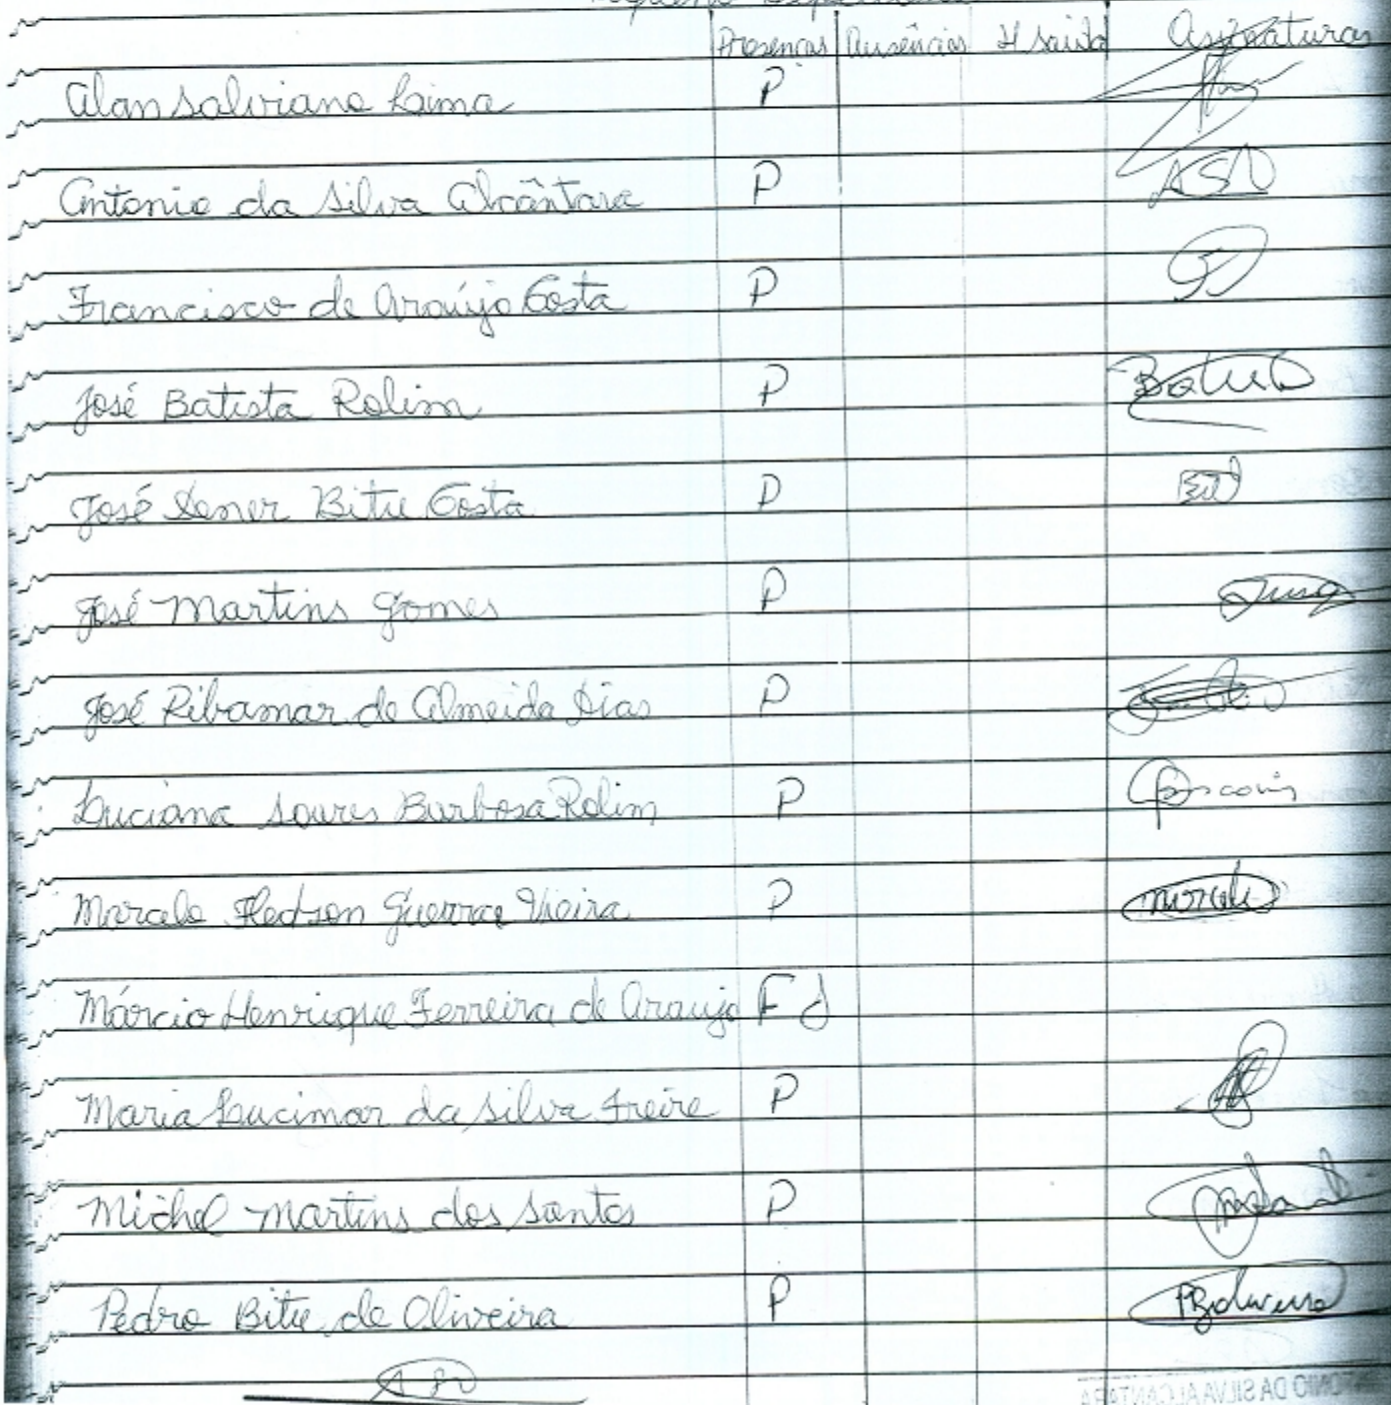 Presenças Ausências H saída Assinaturas
Alan Salviano Lima P
Antonio da Silva Alcântara P ASA
Francisco de Araújo Costa P
José Batista Rolim P Batista
José Sener Bitu Costa P
José Martins Gomes P
José Ribamar de Almeida Dias P
Luciana Soares Barbosa Rolim P
Marcelo Fledson Guerra Vieira P Marcelo
Márcio Henrique Ferreira de Araujo F J
Maria Lucimar da Silva Freire P
Michel Martins dos Santos P
Pedro Bitu de Oliveira P
ANTONIO DA SILVA ALCANTARA